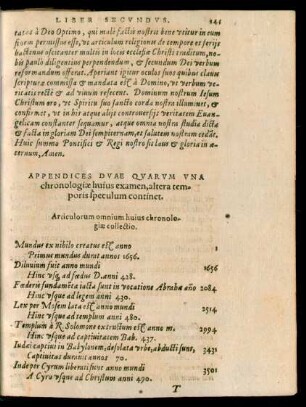 LIBER SECVNDVS. 145
tatas à Deo Optimo, qui malè factis nostris bene vtitur in eum
finem permissus esse, vt articulum religionis de tempore et serijs
hactenus osficenter multis in hoc ecclesiæ Christi traditum, no-
bis paulò diligentius perpendendum, & secundum Dei verbum
reformandum offerat. Aperiant igitur oculos suos quibus clauis
scripturæ commissa & mandata est à Domino, vt verbum ve-
ritatis rectè & ad viuum resecent. Dominum nostrum Iesum
Christum oro, vt Spiritu suo sancto corda nostra illuminet, & con-
firmet, vt in hac atque alijs controuersijs veritatem Euan-
gelicam constanter sequamur, atque omnia nostra studia dicta
& facta in gloriam Dei sempiternam, et salutem nostram cedāt.
Huic summo Pontifici & Regi nostro laus et gloria in æ-
ternum, Amen.
APPENDICES DVAE QVARVM VNA
chronologiæ huius examen, altera tem-
poris speculum continet.
Articulorum omnium huius chronolo-
giæ collectio.
Mundus ex nihilo creatus est anno 1
Primus mundus durat annos 1656.
Diluuium fuit anno mundi 1656
Hinc vsq; ad fœdus D. anni 428.
Fœderis fundamēta iacta sunt in vocatione Abrahæ año 2084
Hinc vsque ad legem anni 430.
Lex per Mosem lata est anno mundi 2514
Hinc vsque ad templum anni 480.
Templum à R. Solomone extructum est anno m. 2994
Hinc vsque ad captiuitatem Bab. 437.
Iudæi captiui in Babylonem, desolata vrbe, abducti sunt, 3431
Captiuitas durans annos 70.
Inde per Cyrum liberati sunt anno mundi 3501
A Cyro vsque ad Christum anni 490.
T